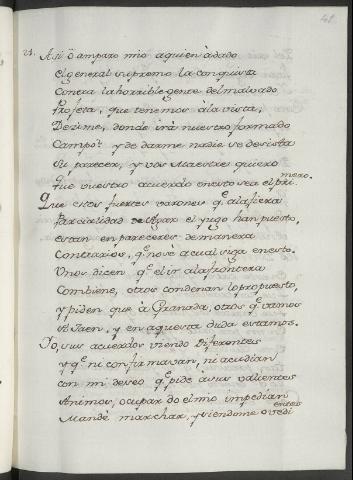 41.
21. Asi ô amparo mio aquien àdado
El general supremo la conquista
Contra la horrible gente del malvado
Profeta, que tenemos àla vista,
Dezime, donde irà nuestro formado
Campo, y de darme nadie se desista
Su parecer, y vos Maestre quiero
Que vuestro acuerdo en esto sea el pri-
mero.
Que estos fuertes varones q.e ala fiera
Parcialidad de Agar el yugo han puesto,
estan en pareceres de manera
Contrarios, q.e no sè a cual siga en esto.
Unos dicen q.e el ir ala frontera
Combiene, otros condenan lo propuesto,
y piden que à Granada, otros q.e vamos
A Jaen, y en aquesta duda estamos.
Yo, sus acuerdos viendo Diferentes
y q.e ni confirmavan, ni acudian
con mi deseo q.e pide à sus valientes
Animos, ocupar do el mio impedian
Mandè marchar, y viendome obedi
entes